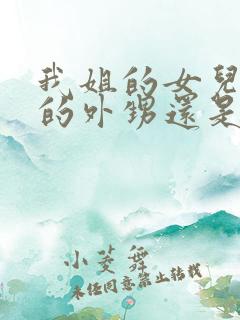 我姐的女兒
的外甥還是
小菱舞
未經同意禁止轉載